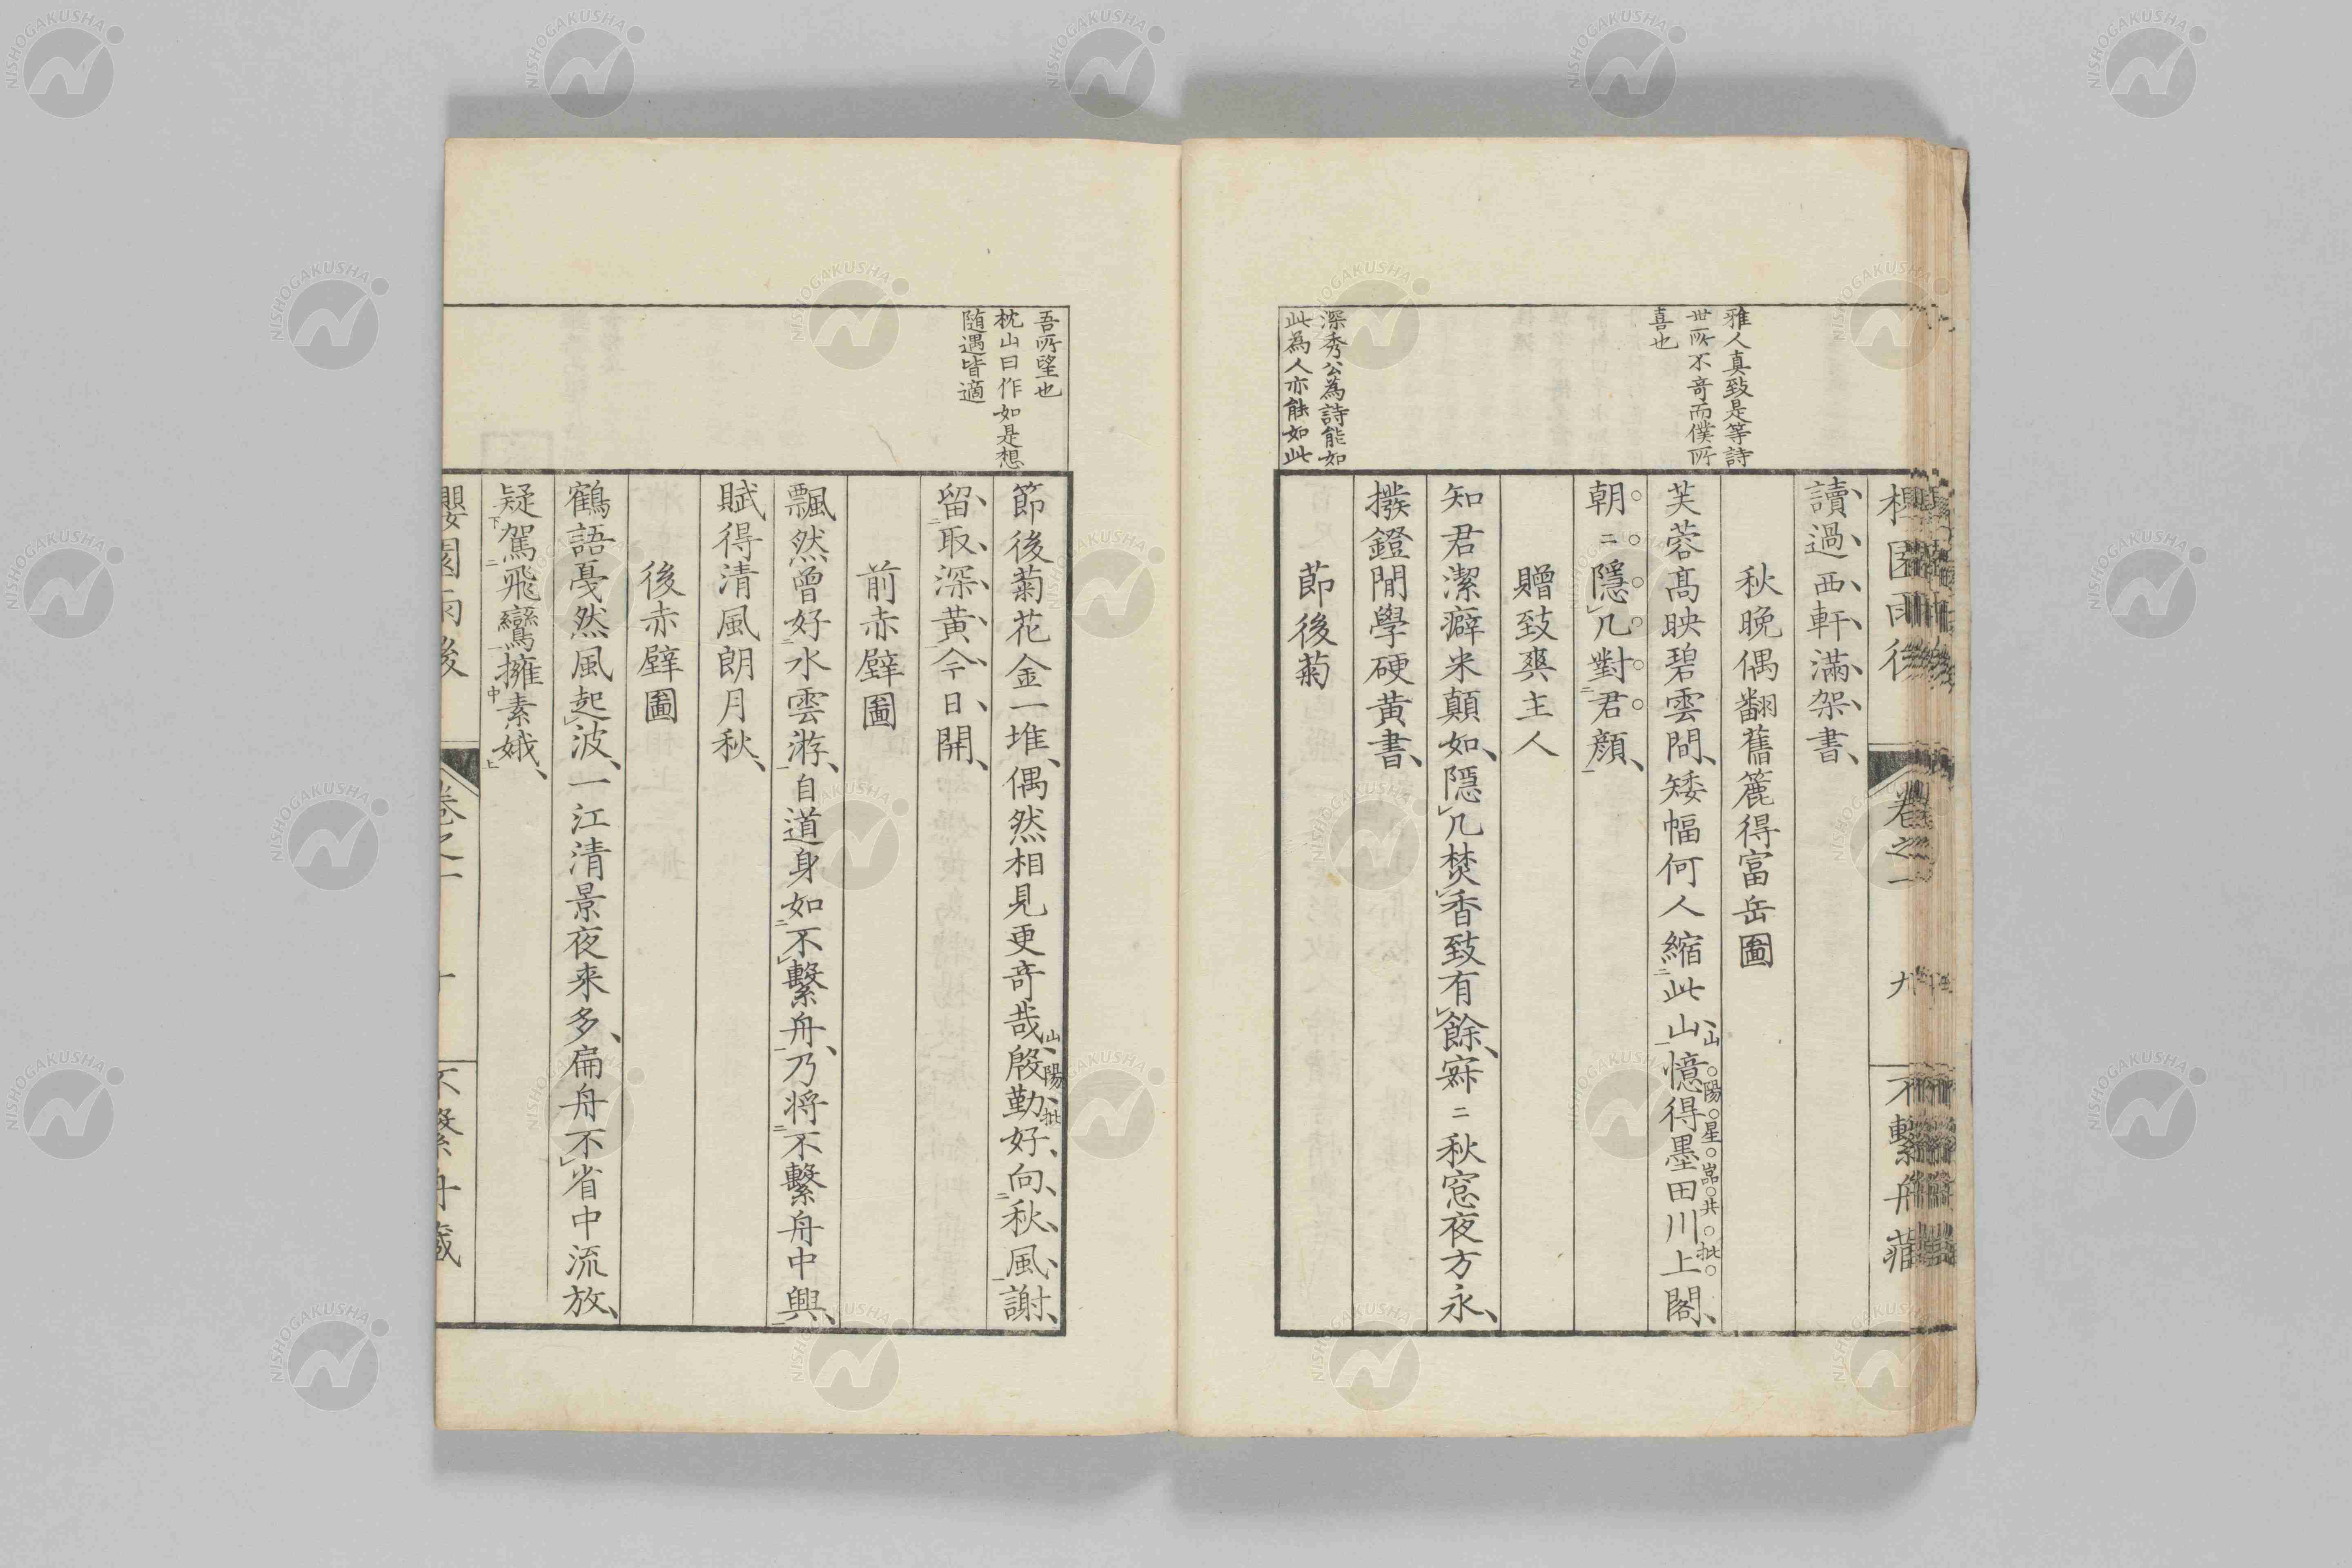 雅人真致是等詩
世所不奇而僕所
喜也
深秀公為詩能如
此為人亦能如此
讀過西軒滿架書
秋晩偶翻舊簏得富岳圖
芙蓉髙映碧雲間矮幅何人縮此山憶得墨田川上閣
山陽星巖共批
朝二隱几對君顔
贈致爽主人
知君潔癖米顛如隱几焚香致有餘寂二秋窓夜方永
撥鐙閒學硬黄書
節後菊
卷之一
九
吾所望也
枕山曰作如是想
随遇皆適
節後菊花金一堆偶然相見更奇哉殷勤好向秋風謝
山陽批
留取深黄今日開
前赤壁圖
飄然曾好水雲游自道身如不繫舟乃将不繫舟中興
賦得清風朗月秋
後赤壁圖
鶴語戞然風起波一江清景夜来多扁舟不省中流放
疑駕飛鸞擁素娥
NISHOGAKUSHA